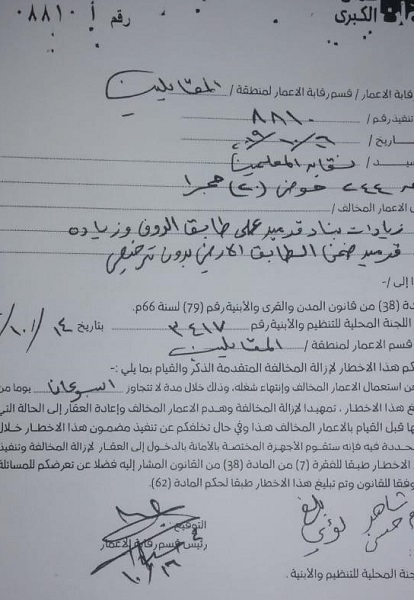 الكبرى
رقم أ ٠٨٨١٠
قابة الاعمار / قسم رقابة الاعمار لمنطقة / المقابلين
تنفيذ رقم / ٨٨١٠
اريخ /
نقابة المعلمين
٢٤٤ حوض (٢٠)
الاعمار المخالف /
زيادات بناء قرميد على طابق الروف وزياده
قرميد ضمن الطابق الارضي بدون ترخيص
ا إلى /-
دة (38) من قانون المدن والقرى والأبنية رقم (79) لسنة 66م.
اللجنة المحلية للتنظيم والأبنية رقم ٣٤١٧ بتاريخ ١٤ /١٠/
قسم الاعمار لمنطقة / المقابلين
كم هذا الاخطار لإزالة المخالفة المتقدمة الذكر والقيام بما يلي :-
من استعمال الاعمار المخالف وإنتهاء شغله، وذلك خلال مدة لا تتجاوز اسبوعان يوما من
غ هذا الاخطار . تمهيدا لإزالة المخالفة وهدم الاعمار المخالف وإعادة العقار إلى الحالة التي
ها قبل القيام بالاعمار المخالف هذا وفي حال تخلفكم عن تنفيذ مضمون هذا الاخطار خلال
حددة فيه فإنه ستقوم الأجهزة المختصة بالأمانة بالدخول إلى العقار لإزالة المخالفة وتنفيذ
الاخطار طبقا للفقرة (7) من المادة (38) من القانون المشار إليه فضلا عن تعرضكم للمسائلة
وفقا للقانون وتم تبليغ هذا الاخطار طبقا لحكم المادة (62).
التوقيع
رئيس قسم رقابة الاعمار
شاهر
لؤي
جنة المحلية للتنظيم والأبنية .